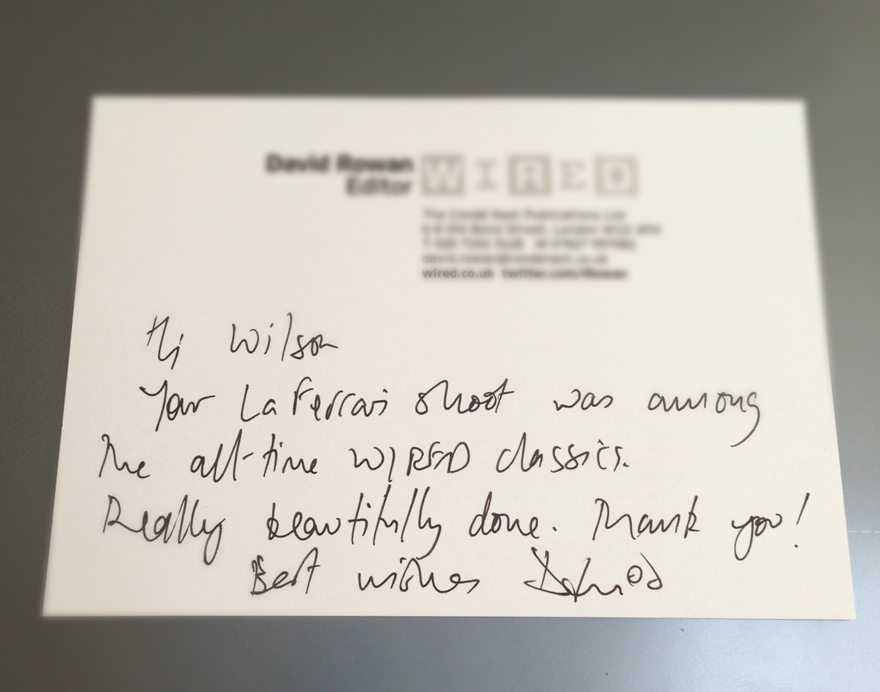 David Rowan WIRED
Editor
The Condé Nast Publications Ltd
wired.co.uk twitter.com/iRowan
Hi Wilson
Your LaFerrari shoot was among
the all-time WIRED classics.
Really beautifully done. Thank you!
Best wishes David